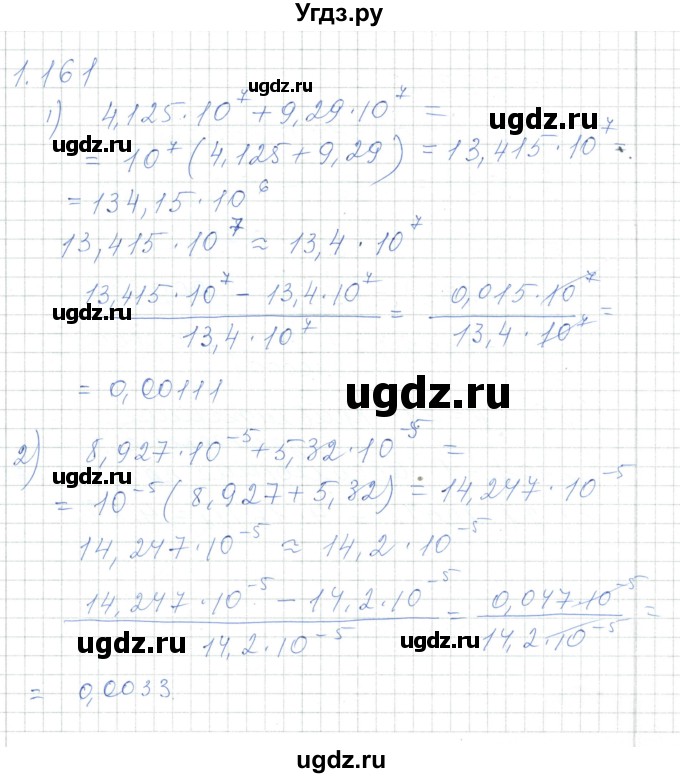 Угдз.ру
1.161
ugdz.ru
1) 4,125·10^7 + 9,29·10^7 =
ugdz.ru
ugdz.ru
= 10^7 (4,125 + 9,29) = 13,415·10^7 =
= 134,15·10^6
13,415·10^7 ≈ 13,4·10^7
(13,415·10^7 − 13,4·10^7) / (13,4·10^7) = (0,015·10^7) / (13,4·10^7) =
ugdz.ru
= 0,00111
ugdz.ru
2) 8,927·10^−5 + 5,32·10^−5 =
ugdz.ru
= 10^−5 (8,927 + 5,32) = 14,247·10^−5
14,247·10^−5 ≈ 14,2·10^−5
(14,247·10^−5 − 14,2·10^−5) / (14,2·10^−5) = (0,047·10^−5) / (14,2·10^−5) =
ugdz.ru
ugdz.ru
= 0,0033.
ugdz.ru